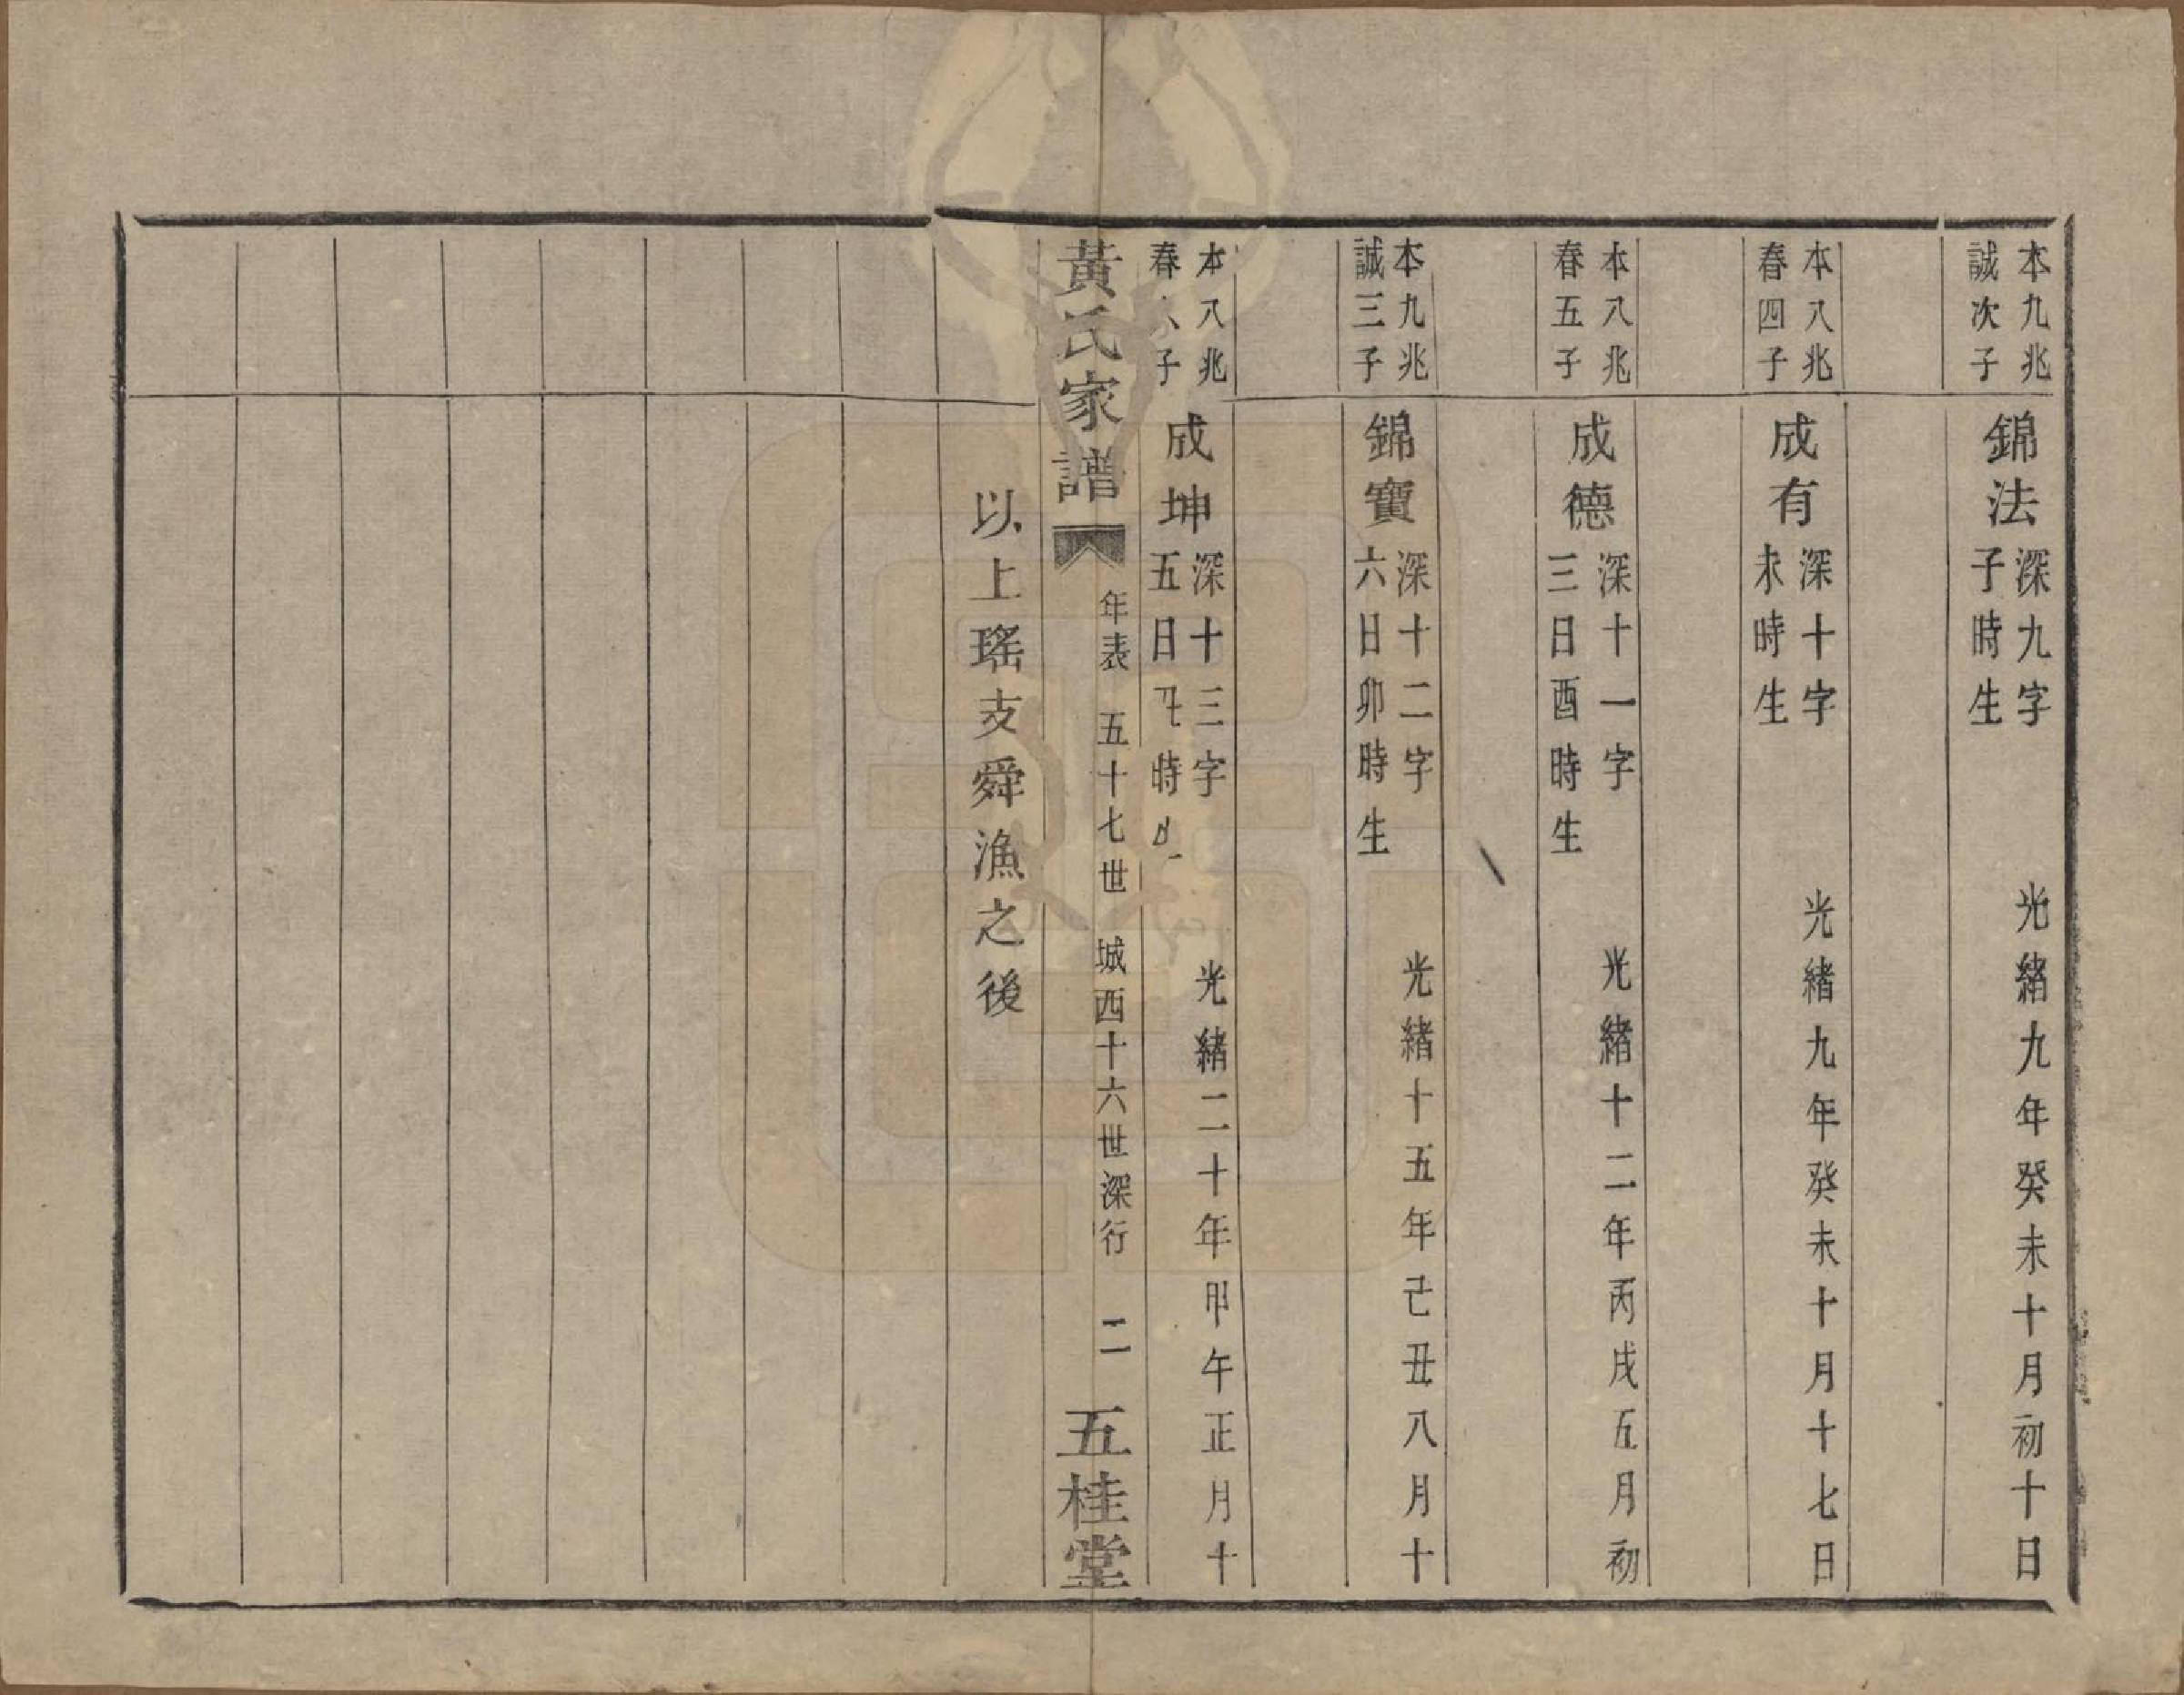 本九兆
誠次子
錦法
深九字
光緒九年癸未十月初十日
子時生
本八兆
春四子
成有
深十字
光緒九年癸未十月十七日
未時生
本八兆
春五子
成德
深十一字
光緒十二年丙戌五月初
三日酉時生
本九兆
誠三子
錦寶
深十二字
光緒十五年己丑八月十
六日卯時生
本八兆
春子
成坤
深十三字
光緒二十年甲午正月十
五日時
黃氏家譜
年表 五十七世 城西十六世深行 二
五桂堂
以上瑤支舜漁之後